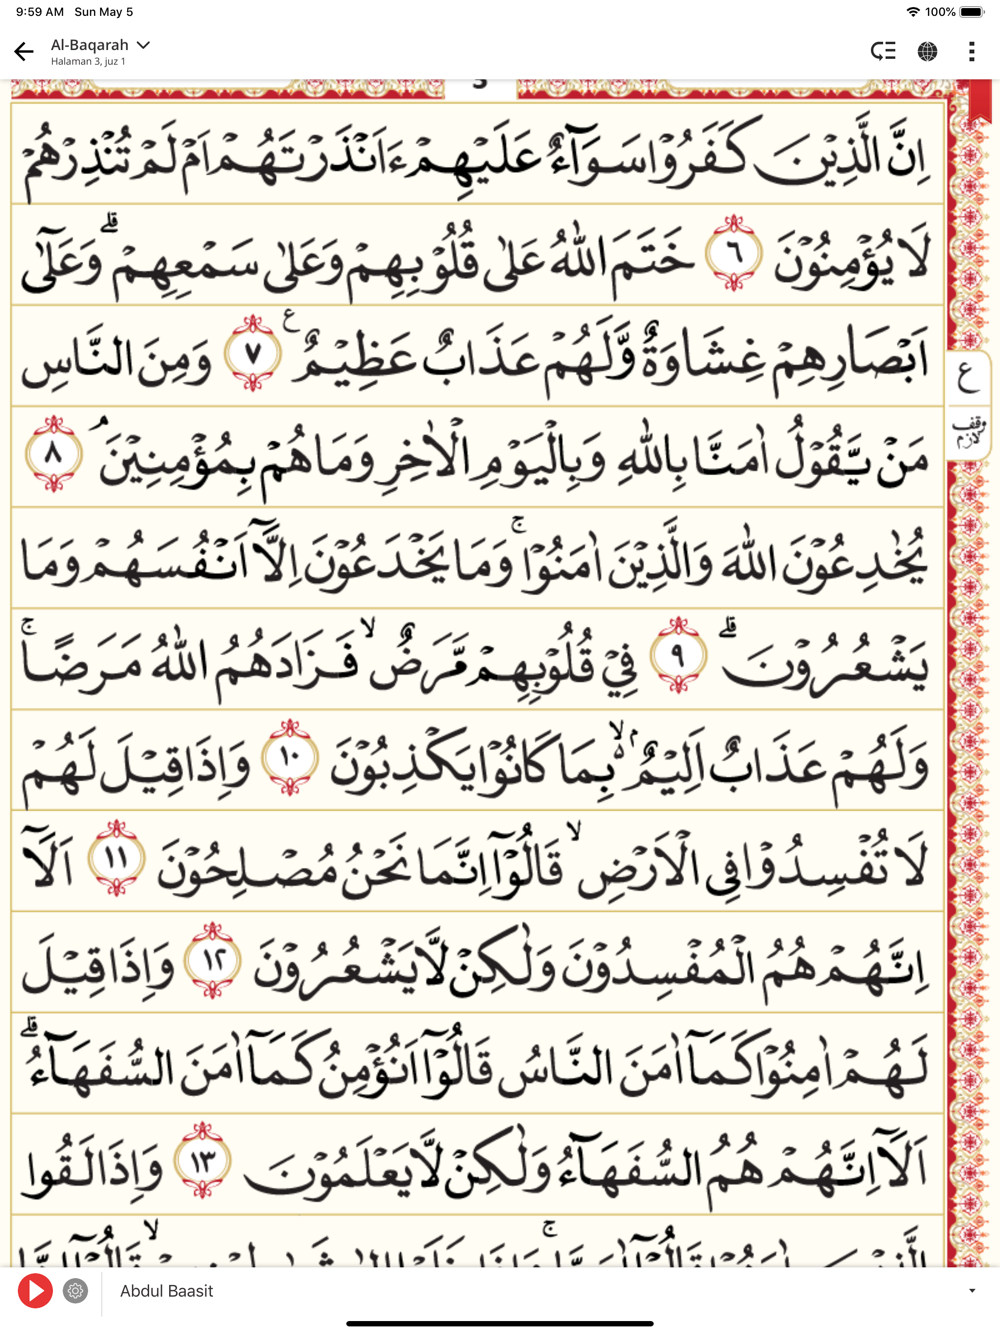 9:59 AM Sun May 5 100%
Al-Baqarah
Halaman 3, juz 1
اِنَّ الَّذِيْنَ كَفَرُوْا سَوَاۤءٌ عَلَيْهِمْ ءَاَنْذَرْتَهُمْ اَمْ لَمْ تُنْذِرْهُمْ
لَا يُؤْمِنُوْنَ ٦ خَتَمَ اللّٰهُ عَلٰى قُلُوْبِهِمْ وَعَلٰى سَمْعِهِمْ ۗ وَعَلٰٓى
اَبْصَارِهِمْ غِشَاوَةٌ وَّلَهُمْ عَذَابٌ عَظِيْمٌ ࣖ ٧ وَمِنَ النَّاسِ
ع
مَنْ يَّقُوْلُ اٰمَنَّا بِاللّٰهِ وَبِالْيَوْمِ الْاٰخِرِ وَمَا هُمْ بِمُؤْمِنِيْنَ ۘ ٨
وقف لازم
يُخٰدِعُوْنَ اللّٰهَ وَالَّذِيْنَ اٰمَنُوْا ۚ وَمَا يَخْدَعُوْنَ اِلَّآ اَنْفُسَهُمْ وَمَا
يَشْعُرُوْنَ ۗ ٩ فِيْ قُلُوْبِهِمْ مَّرَضٌ ۙ فَزَادَهُمُ اللّٰهُ مَرَضًا ۚ
وَلَهُمْ عَذَابٌ اَلِيْمٌ ۢ ۙ بِمَا كَانُوْا يَكْذِبُوْنَ ١٠ وَاِذَا قِيْلَ لَهُمْ
لَا تُفْسِدُوْا فِى الْاَرْضِ ۙ قَالُوْٓا اِنَّمَا نَحْنُ مُصْلِحُوْنَ ١١ اَلَآ
اِنَّهُمْ هُمُ الْمُفْسِدُوْنَ وَلٰكِنْ لَّا يَشْعُرُوْنَ ١٢ وَاِذَا قِيْلَ
لَهُمْ اٰمِنُوْا كَمَآ اٰمَنَ النَّاسُ قَالُوْٓا اَنُؤْمِنُ كَمَآ اٰمَنَ السُّفَهَاۤءُ ۗ
اَلَآ اِنَّهُمْ هُمُ السُّفَهَاۤءُ وَلٰكِنْ لَّا يَعْلَمُوْنَ ١٣ وَاِذَا لَقُوا
Abdul Baasit